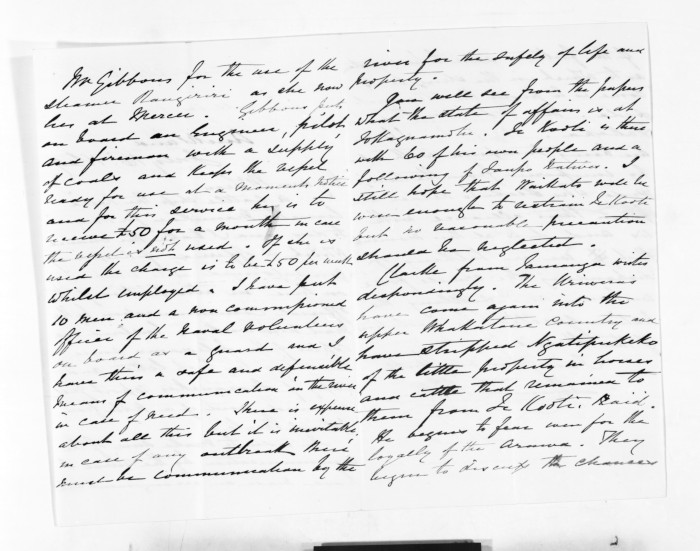 Mr Gibbons for the use of the
steamer Rangiriri as she now
lies at Mercer. Gibbons puts
on board an Engineer, pilot
and fireman with a supply
of coals and keeps the vessel
ready for use at a moments notice
and for this service he is to
receive £50 for a month in case
the vessel is not used. If she is
used the charge is to be £50 per week
whilst employed. I have put
10 men and a non commissioned
officer of the Naval Volunteers
on board as a guard and I
have thus a safe and defensible
means of communication in the river
in case of need. There is expense
about all this but it is inevitable
in case of any outbreak there
must be communication by the
river for the safety of life and
property.
You will see from the papers
what the state of affairs is at
Tokangamutu. Te Kooti is there
with 60 of his own people and a
following of Taupo Natives. I
still hope that Waikato will be
wise enough to restrain Te Kooti
but no reasonable precaution
should be neglected.
Clarke from Tauranga writes
despondingly. The Uriwera's
have come again into the
upper Whakatane Country and
have stripped Ngatipukeko
of the little property in horses
and cattle that remained to
them from Te Kooti's Raid.
He begins to fear even for the
loyalty of the Arawa. They
begin to discuss the chances